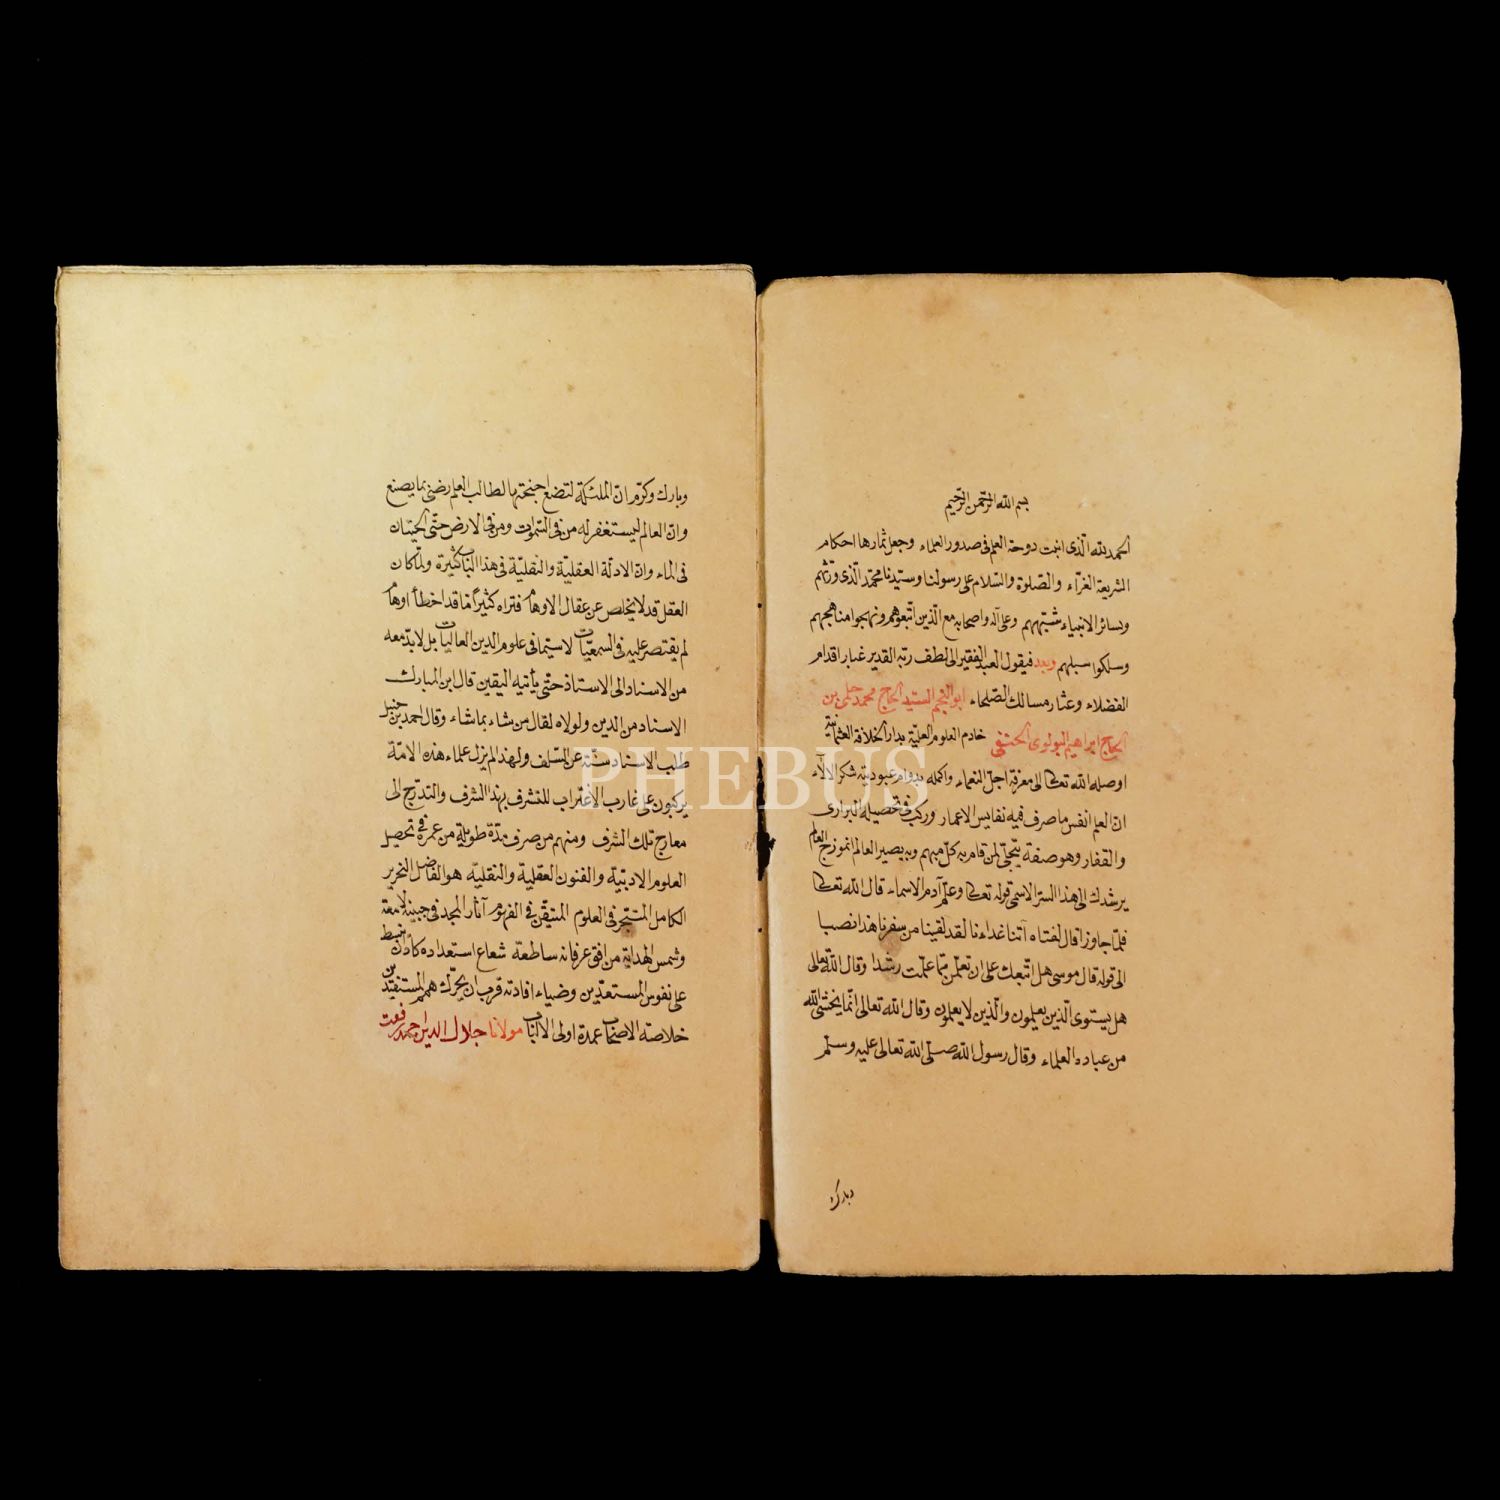 بسم الله الرحمن الرحيم
الحمد لله الّذى انبت دوحة العلم فى صدور العلماء وجعل ثمارها احكام
الشريعة الغرّاء والصّلوة والسّلام على رسولنا وسيّدنا محمّد الّذى ورّثهم
وبسائر الانبياء شبّههم وعلى آله واصحابه مع الّذين اتّبعوهم ونهجوا مناهجهم
وسلكوا سبلهم وبعد فيقول العبد الفقير الى لطف ربّه القدير غبار اقدام
الفضلاء وعثار مسالك الصّلحاء ابو النجم السيّد الحاج محمد حلمى بن
الحاج ابراهيم البولوى الحنفى خادم العلوم العليّة بدار الخلافة العثمانية
اوصله الله تعالى الى معرفة اجلّ النعماء واكمله بدوام عبوديّته شكر الآلاء
انّ العلم انفس ما صرف فيه نفايس الاعمار وركب فى تحصيله البرارى
والقفار وهو صفة يتجلّى لمن قام به كلّ مبهم وبه يصير العالم انموزج العالم
يرشدك الى هذا السرّ الاسمى قوله تعالى وعلّم آدم الاسماء قال الله تعالى
فلمّا جاوزا قال لفتاه آتنا غداءنا لقد لقينا من سفرنا هذا نصبا
الى قوله قال موسى هل اتّبعك على ان تعلّمن ممّا علّمت رشدا وقال الله تعالى
هل يستوى الّذين يعلمون والّذين لا يعلمون وقال الله تعالى انّما يخشى الله
من عباده العلماء وقال رسول الله صلّى الله تعالى عليه وسلّم
وبارك
وبارك وكرّم انّ الملئكة لتضع اجنحتها لطالب العلم رضى بما يصنع
وانّ العالم ليستغفر له من فى السّموات ومن فى الارض حتّى الحيتان
فى الماء وانّ الادلّة العقليّة والنقليّة فى هذا الباب كثيرة ولمّا كان
العقل قد لا يخلص عن عقال الاوهام فتراه كثيراً ما قد اخطأ اوهام
لم يقتصر عليه فى السمعيّات لاسيّما فى علوم الدين العاليات بل لا بدّ معه
من الاسناد الى الاستاذ حتّى يأتيه اليقين قال ابن المبارك
الاسناد من الدين ولولاه لقال من يشاء بما شاء وقال احمد بن حنبل
طلب الاسناد سنّة عن السّلف ولهذا لم يزل علماء هذه الامّة
يركبون على غارب الاغتراب للتشرف بهذا الشرف والتدرّج الى
معارج تلك الشرف ومنهم من صرف مدّة طويلة من عمره فى تحصيل
العلوم الادبيّة والفنون العقليّة والنقليّة هو الفاضل النحرير
الكامل المتبحّر فى العلوم المتيقّن فى الفهوم آثار المجد فى جبينه لامعة
وشمس الهداية من افق عرفانه ساطعة شعاع استعداده كاد ان ينبسط
على نفوس المستعدّين وضياء افادته قرب ان يحرّك همم المستفيدين
خلاصة الاصحاب عمدة اولى الالباب مولانا جلال الدين احمد رفعت
PHEBUS